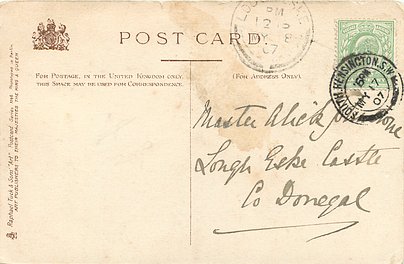 POST CARD
FOR POSTAGE, IN THE UNITED KINGDOM ONLY,
THIS SPACE MAY BE USED FOR CORRESPONDENCE.
(FOR ADDRESS ONLY.)
PM
MY 8
07
SOUTH KENSINGTON. S.W
PM
MY 7
07
Master Alick
Lough Eske Castle
Co Donegal
Raphael Tuck & Sons' "Art" Postcard Series
ART PUBLISHERS TO THEIR MAJESTIES THE KING & QUEEN